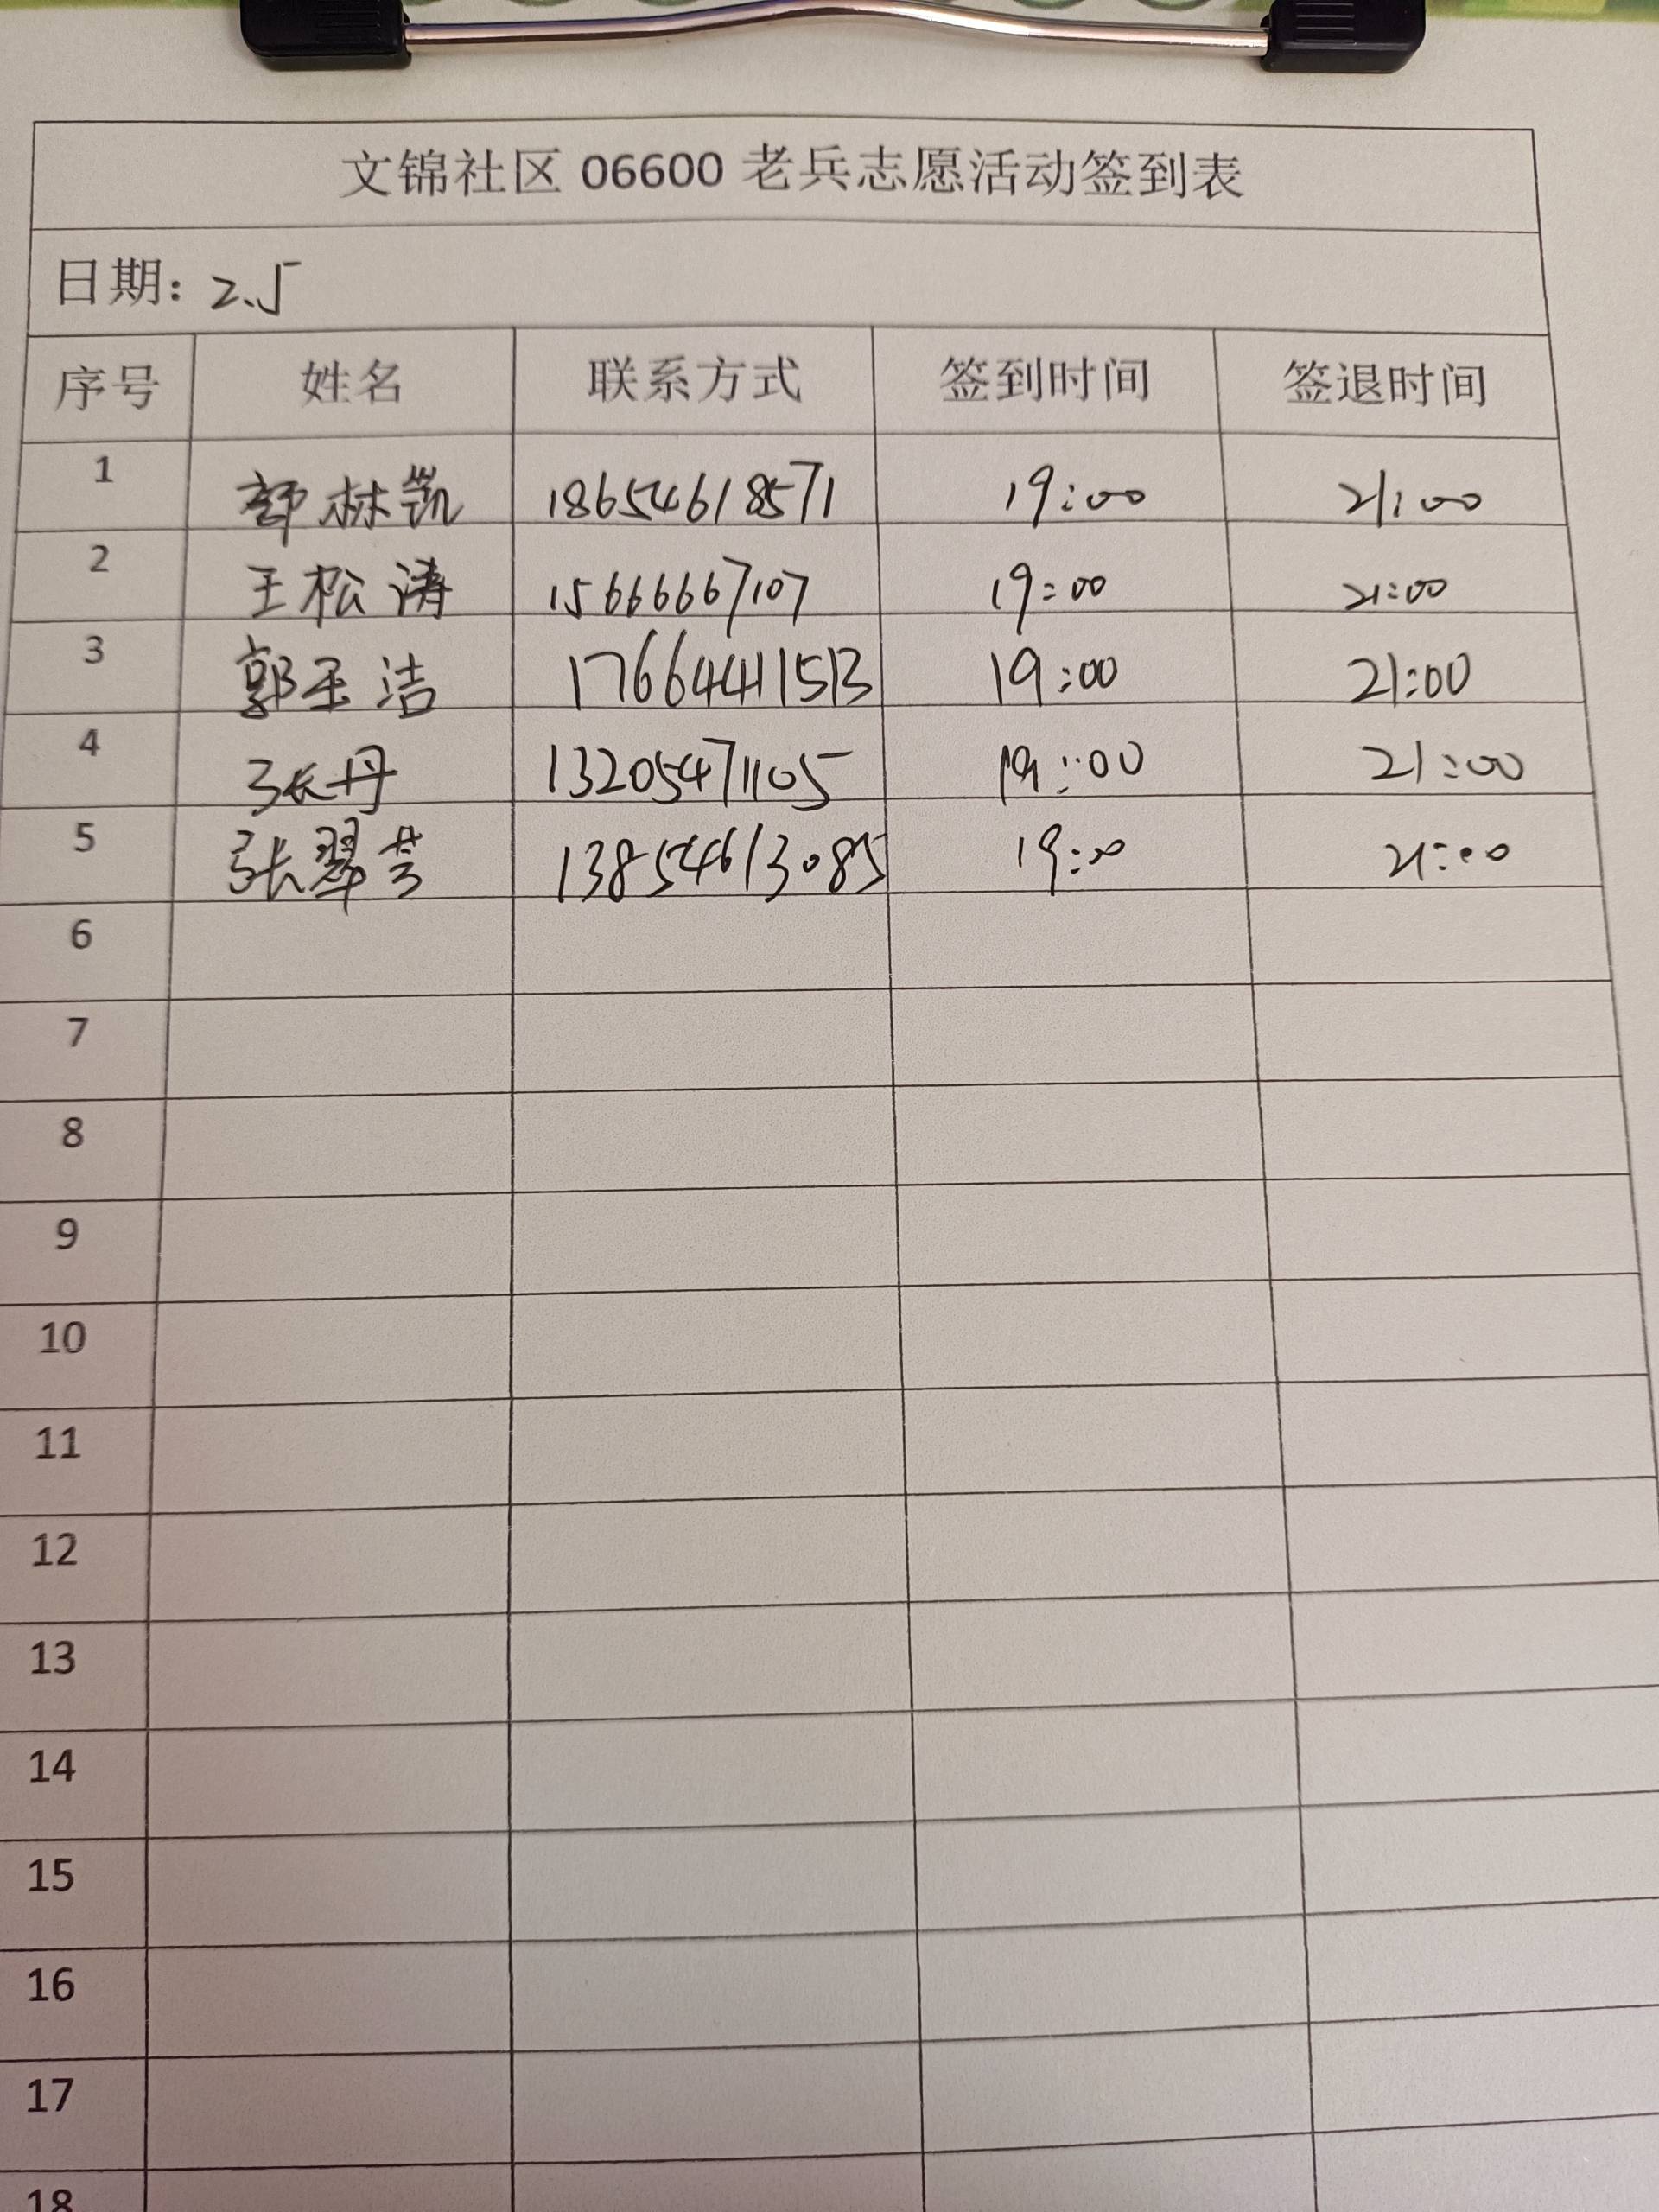 文锦社区 06600 老兵志愿活动签到表
日期: 2.5
序号 姓名 联系方式 签到时间 签退时间
1 林凯 18654618571 19:00 21:00
2 王松涛 15666667107 19:00 21:00
3 郭玉洁 17664411513 19:00 21:00
4 张丹 13205471105 19:00 21:00
5 张翠芸 13854613085 19:00 21:00
6
7
8
9
10
11
12
13
14
15
16
17
18